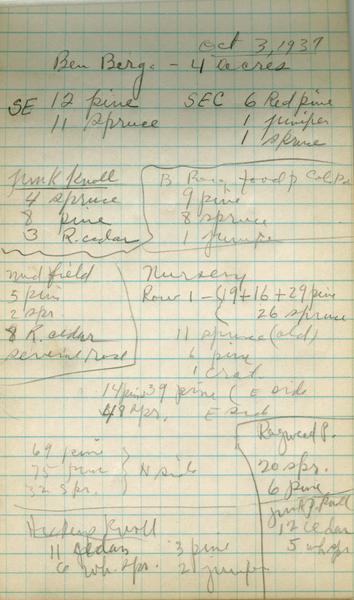 Oct 3, 1937
Ben Berg. - 4 acres
SE 12 pine
11 spruce
SEC 6 Red pine
1 juniper
1 spruce
Junk Knoll
4 spruce
8 pine
3 R. cedar
B. Food p
9 pine
8 spruce
1 juniper
mid field
5 pin
2 spr.
8 R. cedar
several rose
Nursery
Row 1 - 49 + 16 + 29 pine
26 spruce
11 spruce (old)
6 pine
1 crab
14 pine 39 pine ( E side
48 spr. E side
69 pine
75 pine
32 spr.
N side
Ragweed P.
20 spr.
6 pine
Junk p. Knoll
12 cedar
5 wh spr
Knoll
11 cedar 3 pine
6 wh. spr. 2 juniper